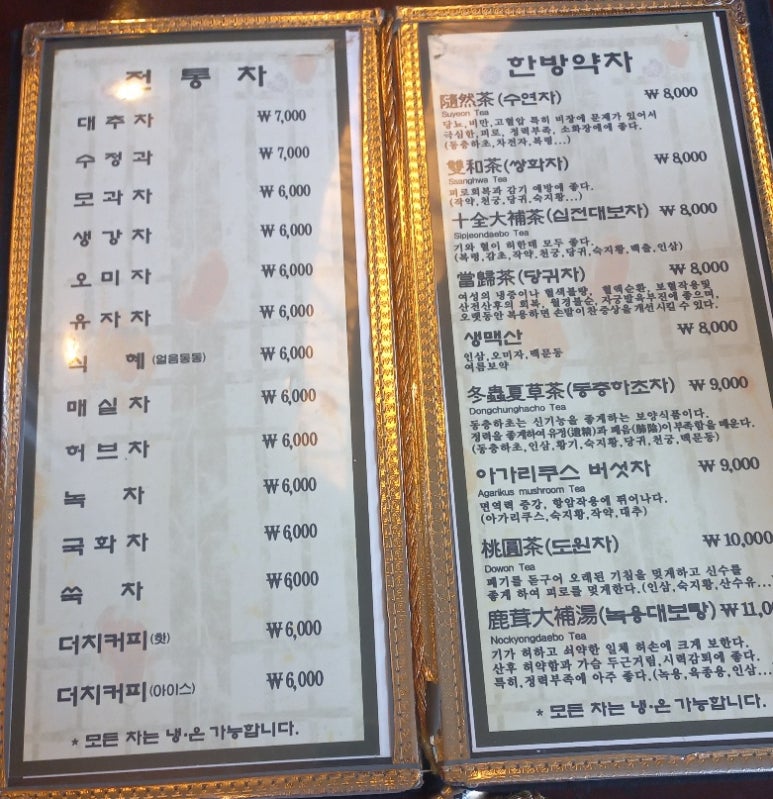 전 통 차
대 추 차 ₩ 7,000
수 정 과 ₩ 7,000
모 과 차 ₩ 6,000
생 강 차 ₩ 6,000
오 미 자 ₩ 6,000
유 자 차 ₩ 6,000
식 혜 (얼음동동) ₩ 6,000
매 실 차 ₩ 6,000
허 브 차 ₩ 6,000
녹 차 ₩ 6,000
국 화 차 ₩ 6,000
쑥 차 ₩ 6,000
더치커피(핫) ₩ 6,000
더치커피(아이스) ₩ 6,000
* 모든 차는 냉·온 가능합니다.
한방약차
隨然茶 (수연차) ₩ 8,000
Suyeon Tea
당뇨,비만,고혈압 특히 비장에 문제가 있어서
극심한,피로, 정력부족, 소화장애에 좋다.
(동충하초,차전자,복령...)
雙和茶(쌍화차) ₩ 8,000
Ssanghwa Tea
피로회복과 감기 예방에 좋다.
(작약,천궁,당귀,숙지황...)
十全大補茶(십전대보차) ₩ 8,000
Sipjeondaebo Tea
기와 혈이 허한데 모두 좋다.
(복령,감초,작약,천궁,당귀,숙지황,백출,인삼)
當歸茶(당귀차) ₩ 8,000
여성의 냉증이나 혈색불량, 혈액순환, 보혈작용및
산전산후의 회복, 월경불순, 자궁발육부진에 좋으며,
오랫동안 복용하면 손발이찬증상을개선시킬 수 있다.
생맥산 ₩ 8,000
인삼,오미자,맥문동
여름보약
冬蟲夏草茶(동충하초차) ₩ 9,000
Dongchunghacho Tea
동충하초는 신기능을 좋게하는 보양식품이다.
정력을 좋게하여 유정(遺精)과 폐음(肺陰)이 부족함을 배운다.
(동충하초,인삼,황기,숙지황,당귀,천궁,맥문동)
아가리쿠스 버섯차 ₩ 9,000
Agarikus mushroom Tea
면역력 증강, 항암작용에 뛰어나다.
(아가리쿠스,숙지황,작약,대추)
桃圓茶(도원차) ₩ 10,000
Dowon Tea
폐기를 돋구어 오래된 기침을 멎게하고 신수를
좋게 하여 피로를 멎게한다.(인삼,숙지황,산수유...
鹿茸大補湯(녹용대보탕) ₩ 11,0
Nockyongdaebo Tea
기가 허하고 쇠약한 일체 허손에 크게 보한다.
산후 허약함과 가슴 두근거림,시력감퇴에 좋다.
특히,정력부족에 아주 좋다.(녹용,육종용,인삼...
* 모든 차는 냉·온 가능합니다.